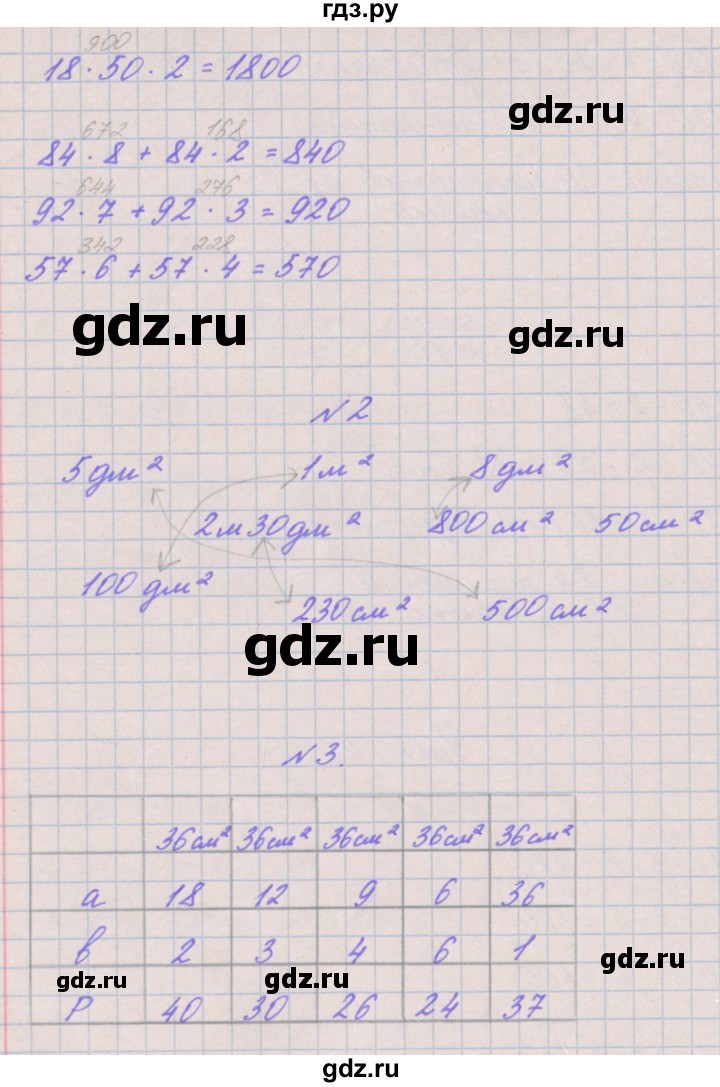 гдз.ру
900
18 · 50 · 2 = 1800
gdz.ru
672 168
84 · 8 + 84 · 2 = 840
644 276
92 · 7 + 92 · 3 = 920
342 228
57 · 6 + 57 · 4 = 570
gdz.ru gdz.ru
№2
5 дм² 1 м² 8 дм²
2 м 30 дм² 800 см² 50 см²
100 дм² 230 см² 500 см²
gdz.ru
№3.
36 см² 36 см² 36 см² 36 см² 36 см²
а 18 12 9 6 36
в 2 3 4 6 1
gdz.ru gdz.ru gdz.ru
Р 40 30 26 24 37
gdz.ru